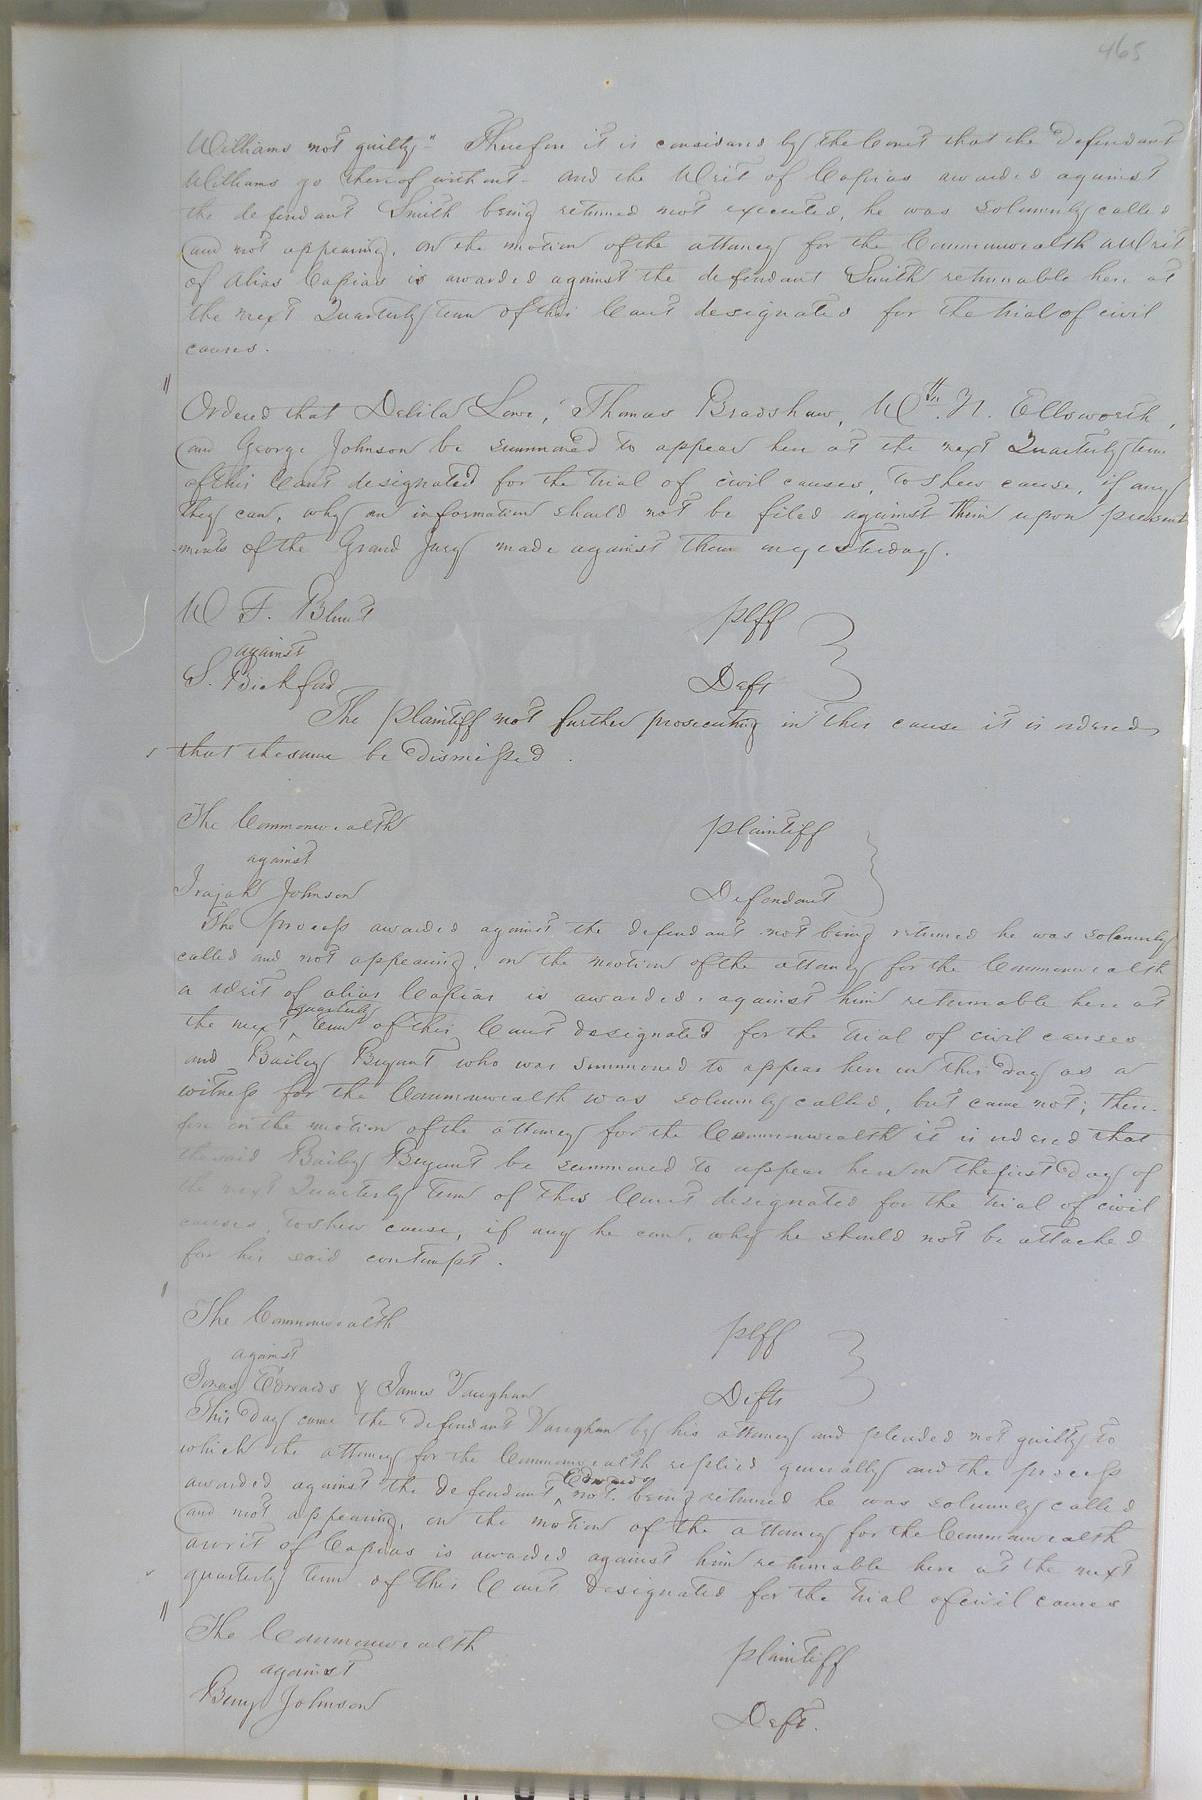 465
Williams not guilty" Therefore it is considered by the Court that the defendant
Williams go thereof without - and the Writ of Capias awarded against
the defendant Smith being returned not executed, he was solemnly called
and not appearing, on the motion of the attorney for the Commonwealth a Writ
of Alias Capias is awarded against the defendant Smith returnable here at
the next Quarterly term of this Court designated for the trial of civil
causes.
Ordered that Delila Lowe, Thomas Bradshaw, Wm. H. Ellsworth,
and George Johnson be summoned to appear here at the next Quarterly term
of this Court designated for the trial of civil causes, to shew cause, if any
they can, why an information should not be filed against them upon present
ments of the Grand Jury made against them on yesterday.
W F. Blunt plff
against
S. Bickford Deft
The plaintiff not further prosecuting in this cause it is ordered
that the same be dismissed.
The Commonwealth plaintiff
against
Johnson Defendant
The process awarded against the defendant not being returned he was solemnly
called and not appearing, on the motion of the attorney for the Commonwealth
a writ of alias Capias is awarded against him returnable here at
the next Quarterly term of this Court designated for the trial of civil causes
and Bailey Bryant who was summoned to appear here on this day as a
witness for the Commonwealth was solemnly called, but came not; there-
fore on the motion of the attorney for the Commonwealth it is ordered that
the said Bailey Bryant be summoned to appear here on the first day of
the next Quarterly term of this Court designated for the trial of civil
causes, to shew cause, if any he can, why he should not be attached
for his said contempt.
The Commonwealth plff
against
Jonas Edwards & James Vaughan Defts
This day came the defendant Vaughan by his attorney and pleaded not guilty to
which the attorney for the Commonwealth replied generally and the process
awarded against the defendant Edwards not being returned he was solemnly called
and not appearing, on the motion of the attorney for the Commonwealth
a writ of Capias is awarded against him returnable here at the next
quarterly term of this Court designated for the trial of civil causes
The Commonwealth plaintiff
against
Benj Johnson Deft.